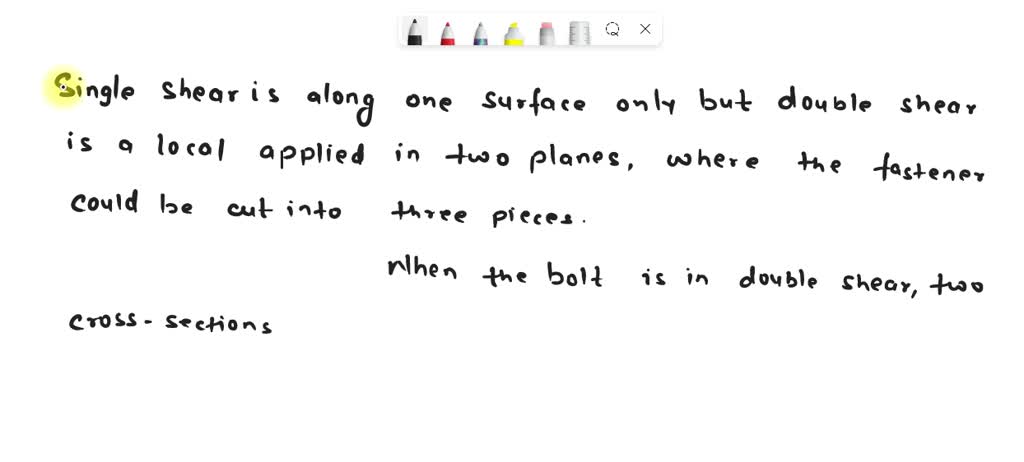 Single shear is along one surface only but double shear
is a local applied in two planes, where the fastener
could be cut into three pieces.
When the bolt is in double shear, two
cross-sections